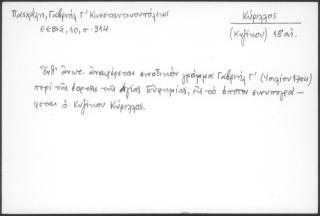 Πασχάλη, Γαβριήλ Γ' Κωνσταντινουπόλεως
ΕΕΒΣ, 10, σ. 314
Κύριλλος
(Κυζίκου) 18 αἰ.
Ἔνθ' ἀνωτ. ἀναφέρεται συνοδικόν γράμμα Γαβριήλ Γ' (Ἰουλίου 1704)
περί τῆς ἑορτῆς τῆς ἁγίας Εὐφημίας, εἰς τό ὁποῖον συνυπογρά-
φεται ὁ Κυζίκου Κύριλλος.